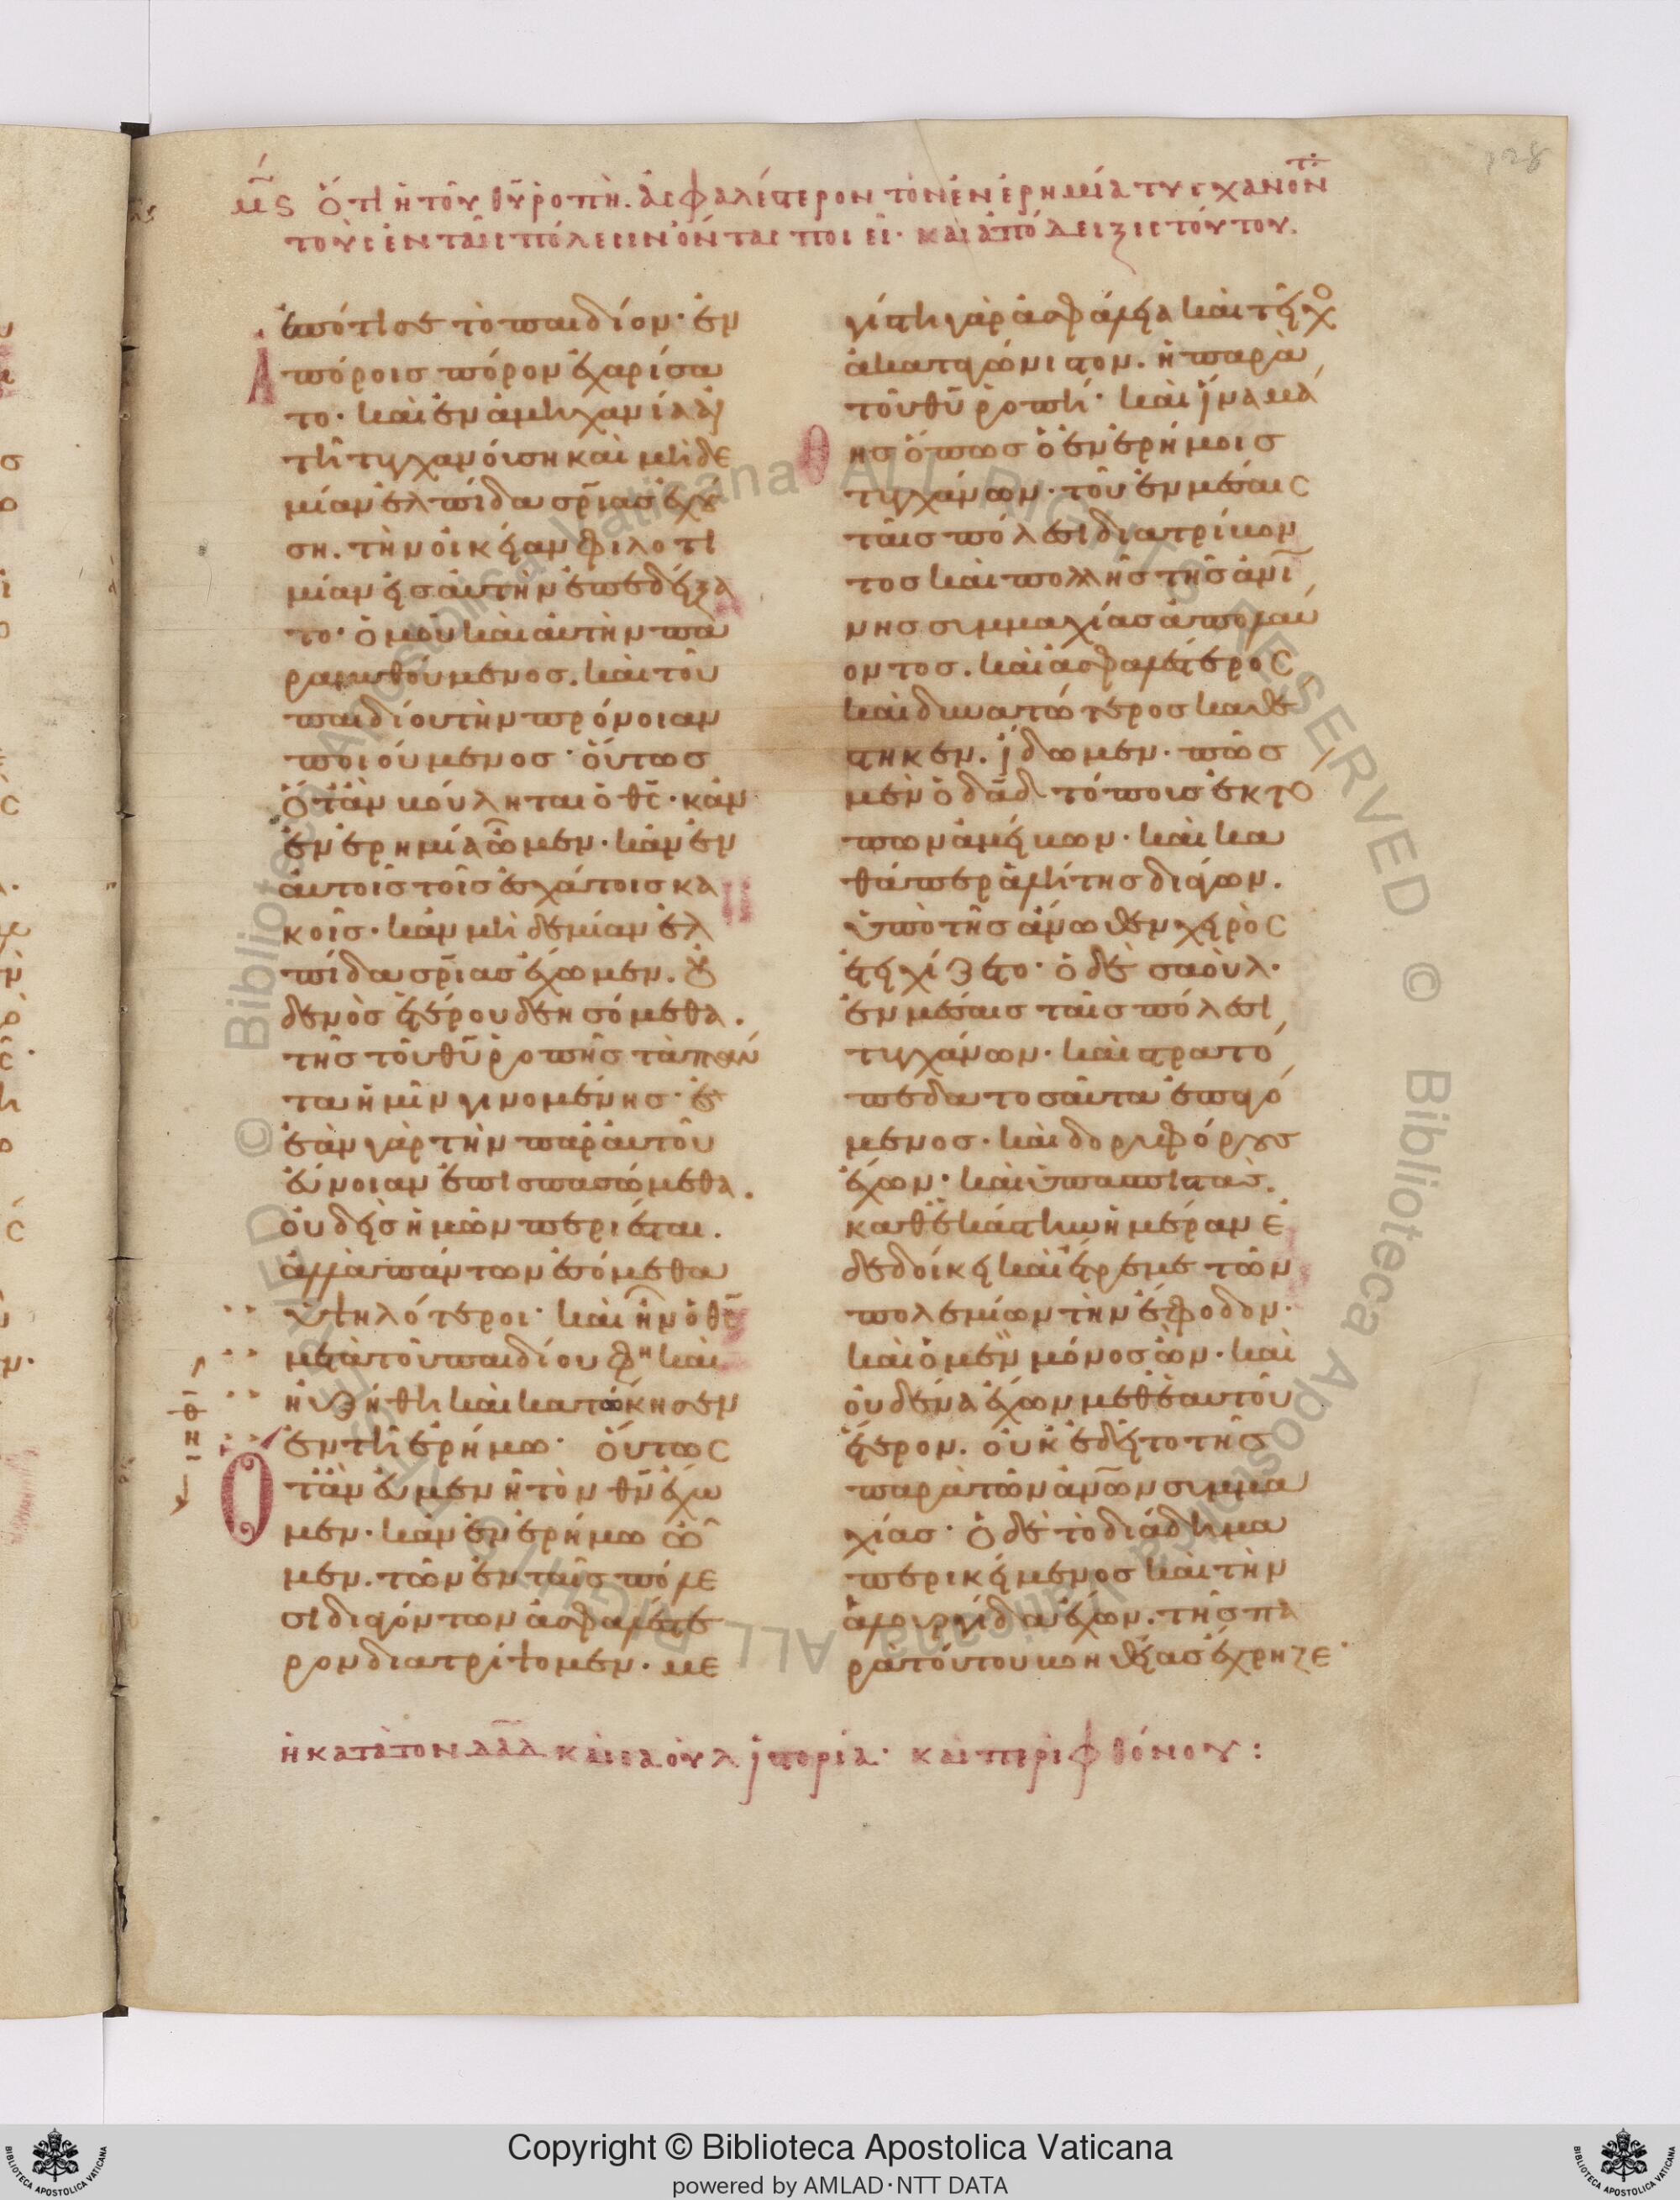 128
μϛ ὅτι ἡ τοῦ θῦ ῥοπὴ. ἀσφαλέστερον τὸν ἐν ἐρημία τυγχάνοντ
τοὺς ἐν ταῖς πόλεσιν ὄντας ποιεῖ· καὶ ἀπόδειξις τούτου.
ἐπότισε τὸ παιδίον· ἐν
ἀπόροις πόρον ἐχαρίσα
το· καὶ ἐν ἀμηχανίαις
τῆ τυγχανόυση καὶ μὴδε
μίαν ἐλπίδα σρίας ἐχού
ση. τὴν οἰκείαν φιλοτι
μίαν εἰς ἀυτὴν ἐπεδείξα
το· ὁμοῦ καὶ ἀυτὴν πα
ραμυθούμενος. καὶ τοῦ
παιδίου τὴν πρόνοιαν
ποιούμενος· ὅυτως
ὅταν βούληται ὁ θς· κἂν
ἐν ἐρημία ὦμεν· κἂν ἐν
ἀυτοῖς τοῖς ἐσχάτοις κα
κοῖς· κἂν μὴδεμίαν ἐλ
πίδα σρίας ἔχωμεν. οὐ
δενὸς ἑτέρου δεησόμεθα.
τῆς τοῦ θῦ ῥοπῆς τὰ πάν
τα ἡμῖν γινομένης· ἐ
ἐὰν γὰρ τὴν παρ ἀυτοῦ
ἔυνοιαν ἐπισπασώμεθα.
ὀυδεὶς ἡμῶν περιέσται.
ἀλλὰ πάντων ἐσόμεθα
ὑψηλότεροι· καὶ ἦν ὁ θς
μετὰ τοῦ παιδίου φη καὶ
ηὐξήθη καὶ κατώκησεν
ἐν τῆ ἐρήμω· ὅυτως
ὅταν ἔυμενῆ τὸν θν ἔχω
μεν· κἂν ἐν ἐρήμω ὦ
μεν. τῶν ἐν ταῖς πόλε
σι διαγόντων ἀσφαλέστε
ρον διατρίψομεν· με
γίστη γὰρ ἀσφάλεια καὶ τεῖχο
ἀκαταγώνιστον. ἡ παρὰ
τοῦ θῦ ῥοπή· καὶ ἵνα μά
θης ὅπως ὁ ἐν ἐρήμοις
τυγχάνων· τοῦ ἐν μέσαις
ταῖς πόλεσι διατρίβον
τος καὶ πολλῆς τῆς ἀνί
νης συμμαχίας ἀπολαύ
οντος. καὶ ἀσφαλέστερος
καὶ δυνατώτερος καθέ
στηκεν. ἴδωμεν· πῶς
μὲν ὁ δαδ τόπους ἐκ τό
πων ἀμείβων· καὶ κα
θάπερ ἀλήτης διάγων.
ὑπὸ τῆς ἄνωθεν χειρὸς
ἐτειχίζετο· ὁ δὲ σαοὺλ·
ἐν μέσαις ταῖς πόλεσι
τυγχάνων· καὶ στρατό
πεδα τοσαῦτα ἐπαγό
μενος· καὶ δορυφόρους
ἔχων· καὶ ὑπασπιστὰς.
καθ ἑκάστην ἡμέραν ἐ
δεδοίκει καὶ ἔτρεμε τῶν
πολεμίων τὴν ἔφοδον·
καὶ ὁ μὲν μόνος ὢν· καὶ
ὀυδένα ἔχων μεθ ἑαυτοῦ
ἕτερον. ὀυκ ἐδεῖτο τῆς
παρὰ τῶν ἀνων συμμα
χίας· ὁ δὲ τὸ διάδημα
περικείμενος καὶ τὴν
ἁλουργίδα ἔχων. τῆς πα
ρὰ τόυτου βοηθείας ἔχρηζε·
ἡ κατὰ τὸν δαδ καὶ σαοὺλ ἱστορία· καὶ περὶ φθόνου:
Copyright © Biblioteca Apostolica Vaticana
powered by AMLAD·NTT DATA